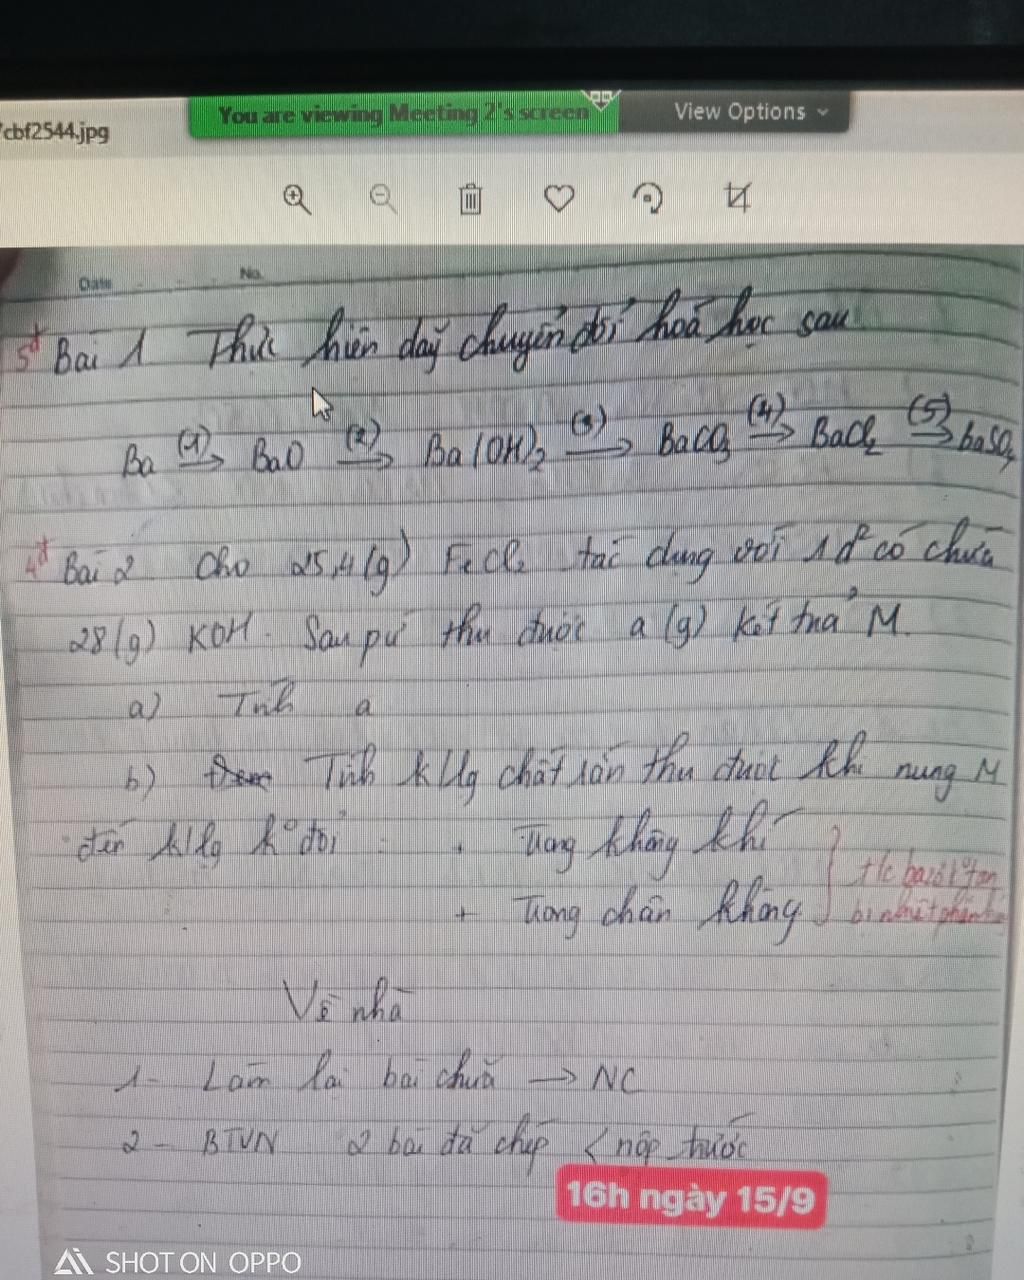 cbf2544.jpg
You are viewing Meeting 2's screen
View Options
Date No.
5đ Bài 1 Thực hiện dãy chuyển đổi hoá học sau
Ba (1)→ BaO (2)→ Ba(OH)2 (3)→ BaCO3 (4)→ BaCl2 (5)→ baSO4
4đ Bài 2 Cho 25,4(g) FeCl2 tác dụng với 1 d² có chứa
28(g) KOH. Sau pứ thu được a (g) kết tủa M.
a) Tính a
b) Tính kllg chất rắn thu được khi nung M
đến kllg k° đổi + Trong không khí
+ Trong chân không
t/c bazơ k° tan
bị nhiệt phân
Về nhà
1- Làm lại bài chữa → NC
2- BTVN 2 bài đã chép < nộp trước
16h ngày 15/9
SHOT ON OPPO